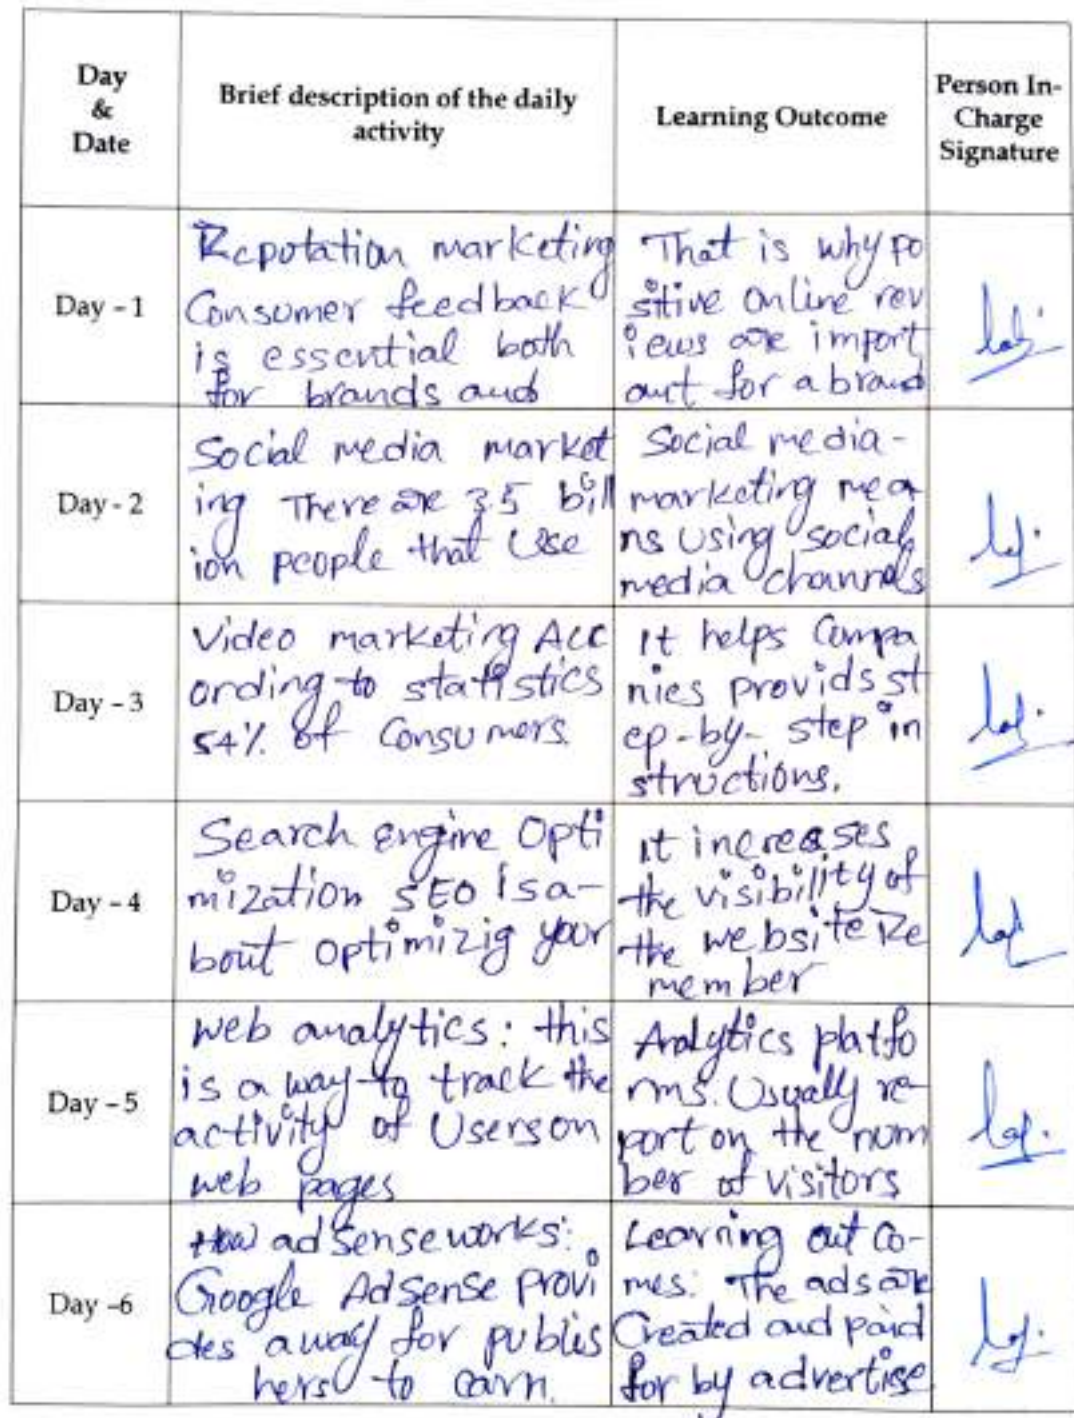 Day
&
Date
Brief description of the daily
activity
Learning Outcome
Person In-
Charge
Signature
Day - 1
Reputation marketing
Consumer feedback
is essential both
for brands and
That is why po
sitive online rev
iews are import
ant for a brand
Day - 2
Social media market
ing There are 3.5 bill
ion people that Use
Social media-
marketing mea
ns using social
media channels
Day - 3
Video marketing Acc
ording to statistics
54% of Consumers.
It helps Compa
nies provids st
ep-by-step in
structions.
Day - 4
Search engine Opti
mization SEO is a-
bout Optimizig your
It increases
the visibility of
the website Re
member
Day - 5
Web analytics: this
is a way to track the
activity of Users on
web pages
Analytics platfo
rms. Usually re-
port on the num
ber of visitors
Day -6
How adsense works:
Google AdSense provi
des a way for publis
hers to earn.
Learning out co-
mes: The ads are
Created and paid
for by advertise